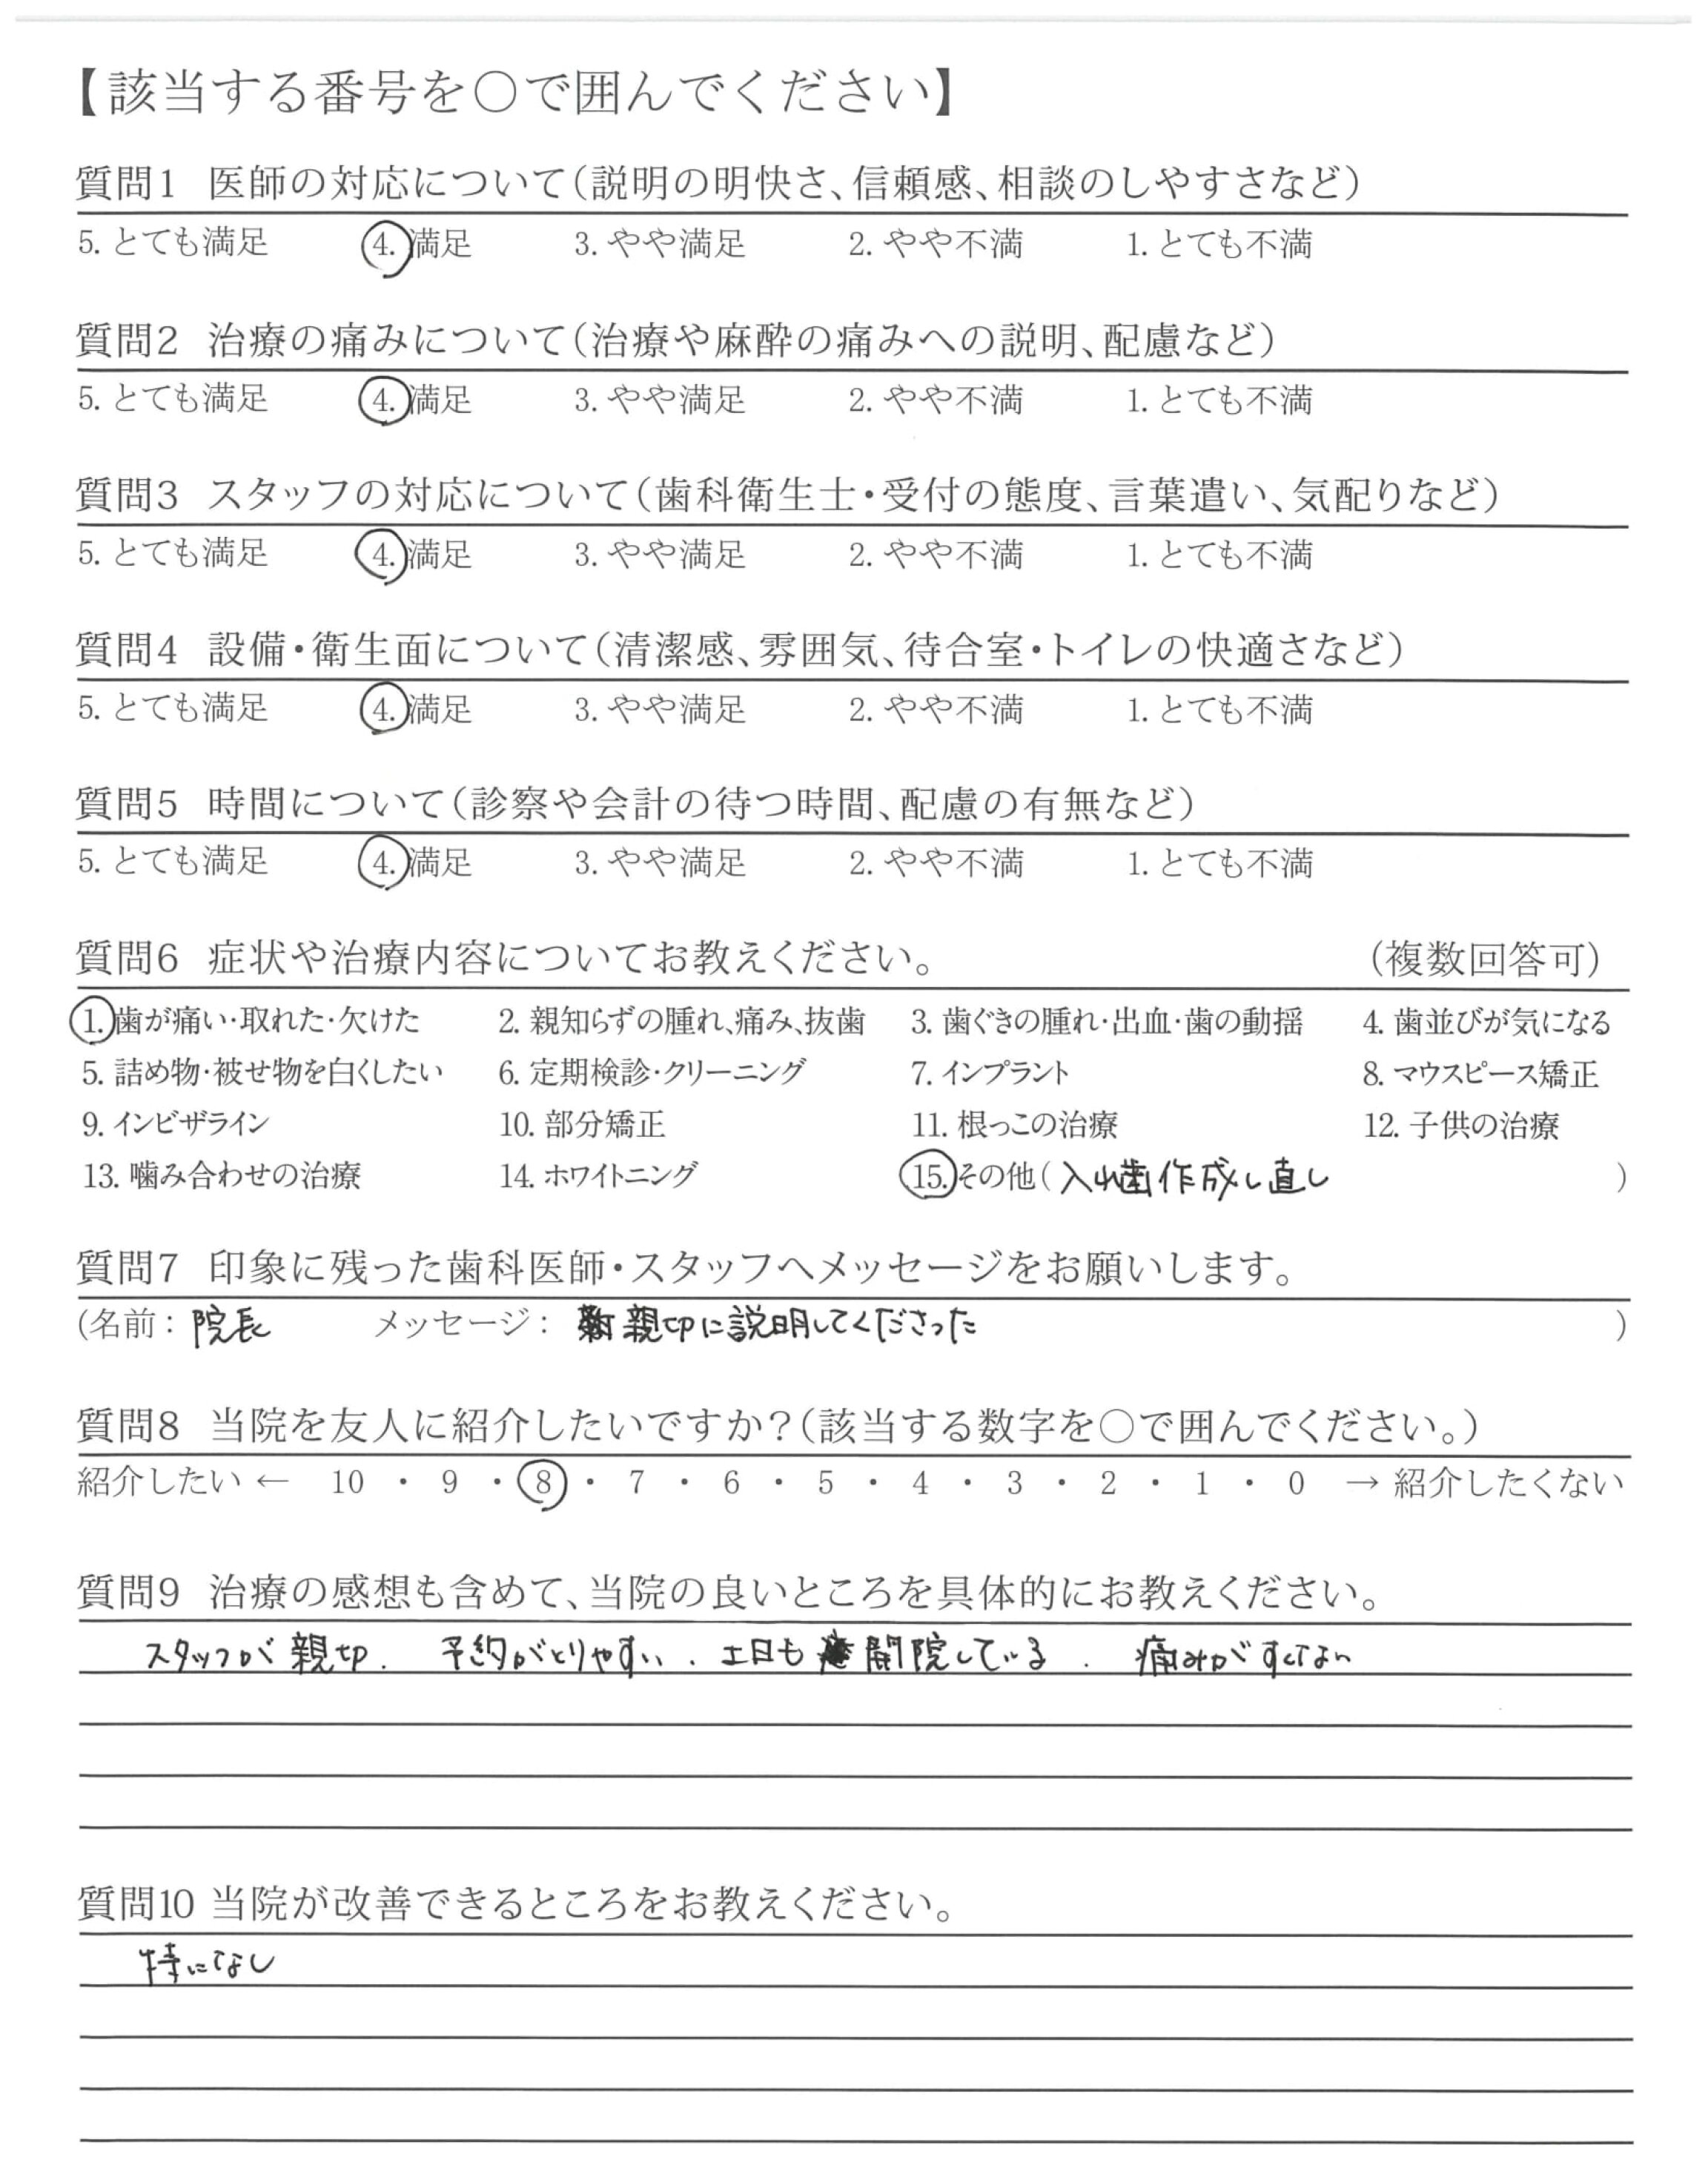 【該当する番号を○で囲んでください】
質問1 医師の対応について(説明の明快さ、信頼感、相談のしやすさなど)
5. とても満足 4. 満足 3. やや満足 2. やや不満 1. とても不満
質問2 治療の痛みについて(治療や麻酔の痛みへの説明、配慮など)
5. とても満足 4. 満足 3. やや満足 2. やや不満 1. とても不満
質問3 スタッフの対応について(歯科衛生士・受付の態度、言葉遣い、気配りなど)
5. とても満足 4. 満足 3. やや満足 2. やや不満 1. とても不満
質問4 設備・衛生面について(清潔感、雰囲気、待合室・トイレの快適さなど)
5. とても満足 4. 満足 3. やや満足 2. やや不満 1. とても不満
質問5 時間について(診察や会計の待つ時間、配慮の有無など)
5. とても満足 4. 満足 3. やや満足 2. やや不満 1. とても不満
質問6 症状や治療内容についてお教えください。 (複数回答可)
1. 歯が痛い・取れた・欠けた 2. 親知らずの腫れ、痛み、抜歯 3. 歯ぐきの腫れ・出血・歯の動揺 4. 歯並びが気になる
5. 詰め物・被せ物を白くしたい 6. 定期検診・クリーニング 7. インプラント 8. マウスピース矯正
9. インビザライン 10. 部分矯正 11. 根っこの治療 12. 子供の治療
13. 噛み合わせの治療 14. ホワイトニング 15. その他(入れ歯作成し直し )
質問7 印象に残った歯科医師・スタッフへメッセージをお願いします。
(名前:院長 メッセージ: 親切に説明してくださった )
質問8 当院を友人に紹介したいですか?(該当する数字を○で囲んでください。)
紹介したい ← 10 ・ 9 ・ 8 ・ 7 ・ 6 ・ 5 ・ 4 ・ 3 ・ 2 ・ 1 ・ 0 → 紹介したくない
質問9 治療の感想も含めて、当院の良いところを具体的にお教えください。
スタッフが親切. 予約がとりやすい. 土日も開院している. 痛みがすくない
質問10 当院が改善できるところをお教えください。
特になし